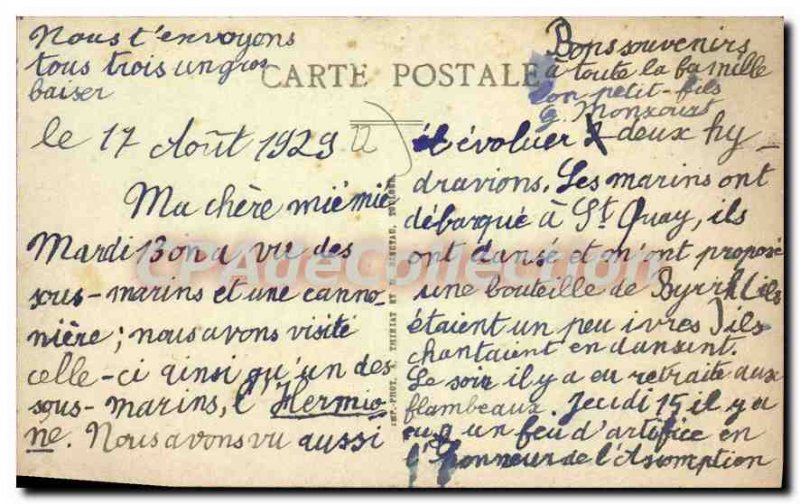 Nous t'envoyons
tous trois un gros
baiser
CARTE POSTALE
Bons souvenirs
à toute la famille
ton petit-fils
le 17 Août 1929
Ma chère miémie
Mardi 13 on a vu des
sous-marins et une canno-
nière ; nous avons visité
celle-ci ainsi qu'un des
sous-marins, l'Hermio-
ne. Nous avons vu aussi
évoluer deux hy-
dravions. Les marins ont
débarqué à St Quay, ils
ont dansé et m'ont proposé
une bouteille de Byrrh (ils
étaient un peu ivres) ils
chantaient en dansant.
Le soir il y a eu retraite aux
flambeaux. Jeudi 15 il y a
eu un feu d'artifice en
l'honneur de l'Assomption
CPAdeCollection